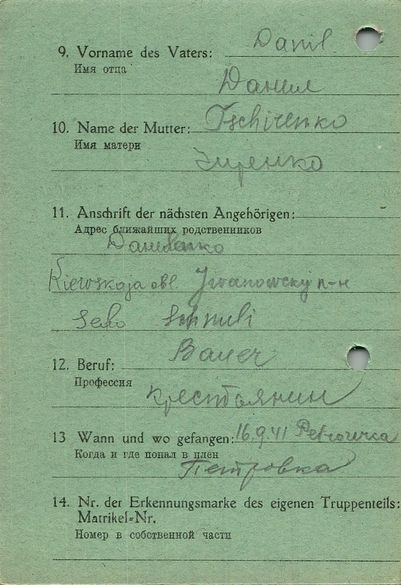 9. Vorname des Vaters: Danil
Имя отца
Данил
10. Name der Mutter: Tschirenko
Имя матери
Зиренко
11. Anschrift der nächsten Angehörigen:
Адрес ближайших родственников
Danilenko
Kiewskaja obl Iwanowsky р-н
Selo
12. Beruf: Bauer
Профессия
Крестьянин
13 Wann und wo gefangen: 16.9.41 Petrowka
Когда и где попал в плен
Петровка
14. Nr. der Erkennungsmarke des eigenen Truppenteils:
Matrikel-Nr.
Номер в собственной части